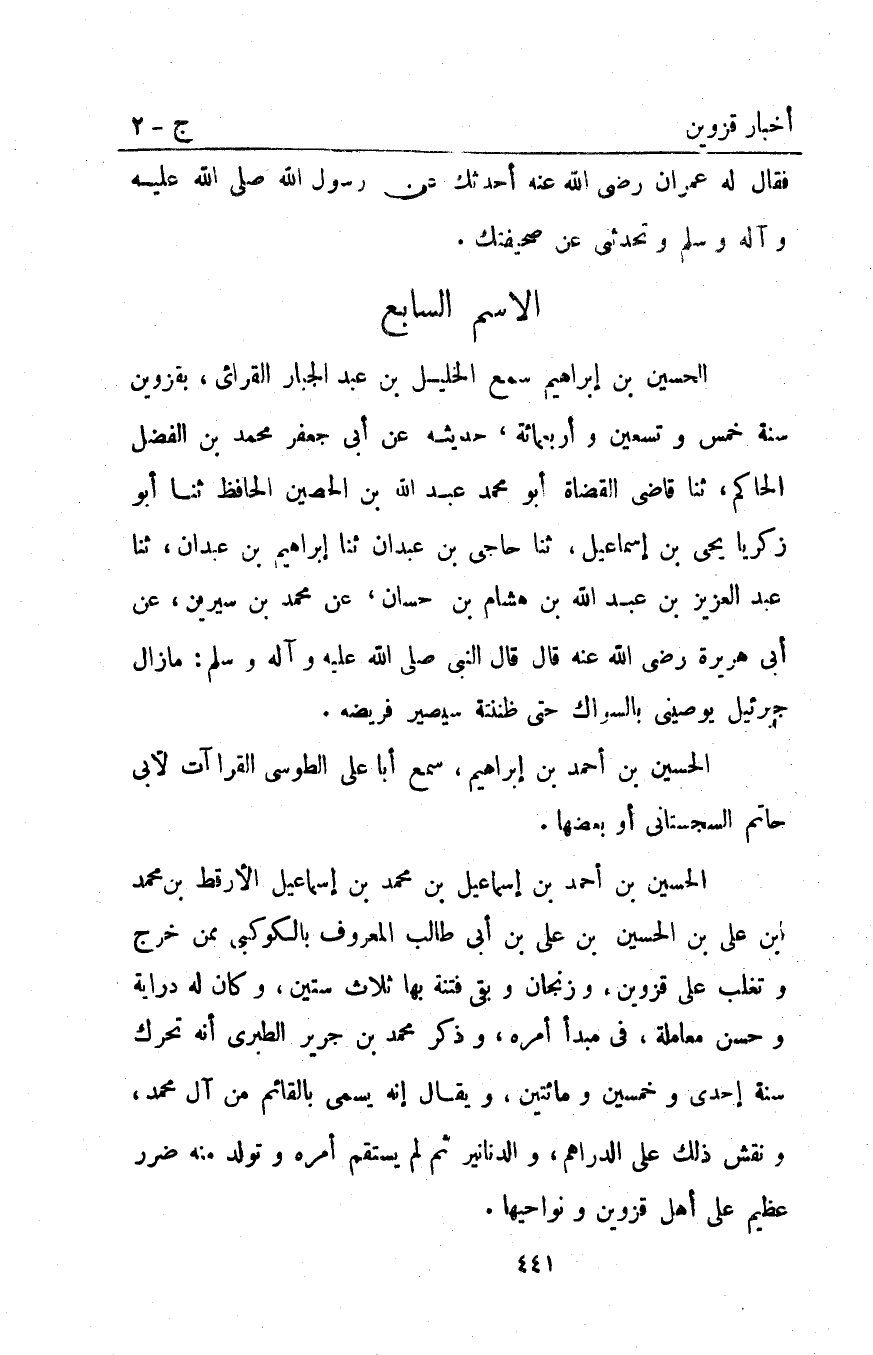 أخبار قزوين ج - ٢
فقال له عمران رضى الله عنه أحدثك عن رسول الله صلى الله عليه
و آله و سلم و تحدثنى عن صحيفتك .
الاسم السابع
الحسين بن إبراهيم سمع الخليل بن عبد الجبار القرائى ، بقزوين
سنة خمس و تسعين و أربعمائة ، حديثه عن أبى جعفر محمد بن الفضل
الحاكم ، ثنا قاضى القضاة أبو محمد عبد الله بن الحصين الحافظ ثنا أبو
زكريا يحيى بن إسماعيل ، ثنا حاجى بن عبدان ثنا إبراهيم بن عبدان ، ثنا
عبد العزيز بن عبد الله بن هشام بن حسان ، عن محمد بن سيرين ، عن
أبى هريرة رضى الله عنه قال قال النبى صلى الله عليه و آله و سلم : مازال
جبرئيل يوصينى بالسواك حتى ظننتة سيصير فريضه .
الحسين بن أحمد بن إبراهيم ، سمع أبا على الطوسى القراآت لآبى
حاتم السجستانى أو بعضها .
الحسين بن أحمد بن إسماعيل بن محمد بن إسماعيل الأرقط بن محمد
ابن على بن الحسين بن على بن أبى طالب المعروف بالكوكبى ممن خرج
و تغلب على قزوين ، و زنجان و بقى فتنة بها ثلاث ستين ، و كان له دراية
و حسن معاملة ، فى مبدأ أمره ، و ذكر محمد بن جرير الطبرى أنه تحرك
سنة إحدى و خمسين و مائتين ، و يقال إنه يسمى بالقائم من آل محمد ،
و نقش ذلك على الدراهم ، و الدنانير ثم لم يستقم أمره و تولد منه ضرر
عظيم على أهل قزوين و نواحيها .
٤٤١